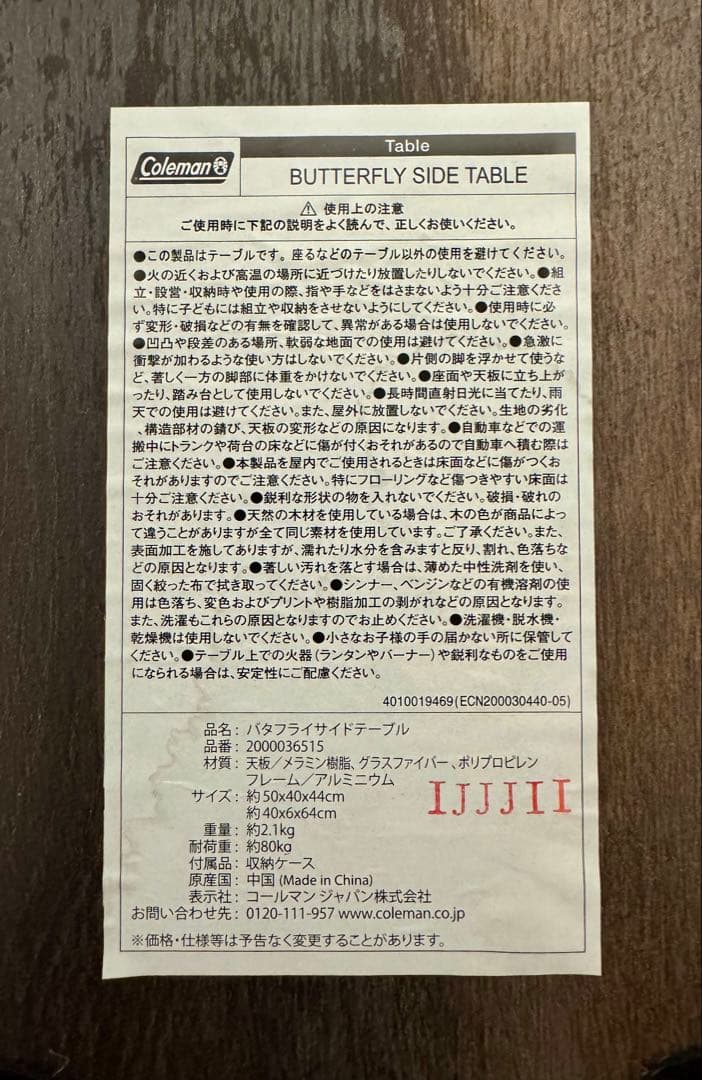 Coleman
Table
BUTTERFLY SIDE TABLE
⚠ 使用上の注意
ご使用時に下記の説明をよく読んで、正しくお使いください。
●この製品はテーブルです。座るなどのテーブル以外の使用を避けてください。
●火の近くおよび高温の場所に近づけたり放置したりしないでください。●組
立・設営・収納時や使用の際、指や手などをはさまないよう十分ご注意くださ
い。特に子どもには組立や収納をさせないようにしてください。●使用時に必
ず変形・破損などの有無を確認して、異常がある場合は使用しないでください。
●凹凸や段差のある場所、軟弱な地面での使用は避けてください。●急激に
衝撃が加わるような使い方はしないでください。●片側の脚を浮かせて使うな
ど、著しく一方の脚部に体重をかけないでください。●座面や天板に立ち上が
ったり、踏み台として使用しないでください。●長時間直射日光に当てたり、雨
天での使用は避けてください。また、屋外に放置しないでください。生地の劣化
、構造部材の錆び、天板の変形などの原因になります。●自動車などでの運
搬中にトランクや荷台の床などに傷が付くおそれがあるので自動車へ積む際は
ご注意ください。●本製品を屋内でご使用されるときは床面などに傷がつくお
それがありますのでご注意ください。特にフローリングなど傷つきやすい床面は
十分ご注意ください。●鋭利な形状の物を入れないでください。破損・破れの
おそれがあります。●天然の木材を使用している場合は、木の色が商品によっ
て違うことがありますが全て同じ素材を使用しています。ご了承ください。また、
表面加工を施してありますが、濡れたり水分を含みますと反り、割れ、色落ちな
どの原因となります。●著しい汚れを落とす場合は、薄めた中性洗剤を使い、
固く絞った布で拭き取ってください。●シンナー、ベンジンなどの有機溶剤の使
用は色落ち、変色およびプリントや樹脂加工の剥がれなどの原因となります。
また、洗濯もこれらの原因となりますのでお止めください。●洗濯機・脱水機・
乾燥機は使用しないでください。●小さなお子様の手の届かない所に保管して
ください。●テーブル上での火器(ランタンやバーナー)や鋭利なものをご使用
になられる場合は、安定性にご配慮ください。
4010019469(ECN200030440-05)
品名: バタフライサイドテーブル
品番: 2000036515
材質: 天板/メラミン樹脂、グラスファイバー、ポリプロピレン
フレーム/アルミニウム
サイズ: 約50x40x44cm
約40x6x64cm
IJJJII
重量: 約2.1kg
耐荷重: 約80kg
付属品: 収納ケース
原産国: 中国 (Made in China)
表示社: コールマン ジャパン株式会社
お問い合わせ先: 0120-111-957 www.coleman.co.jp
※価格・仕様等は予告なく変更することがあります。